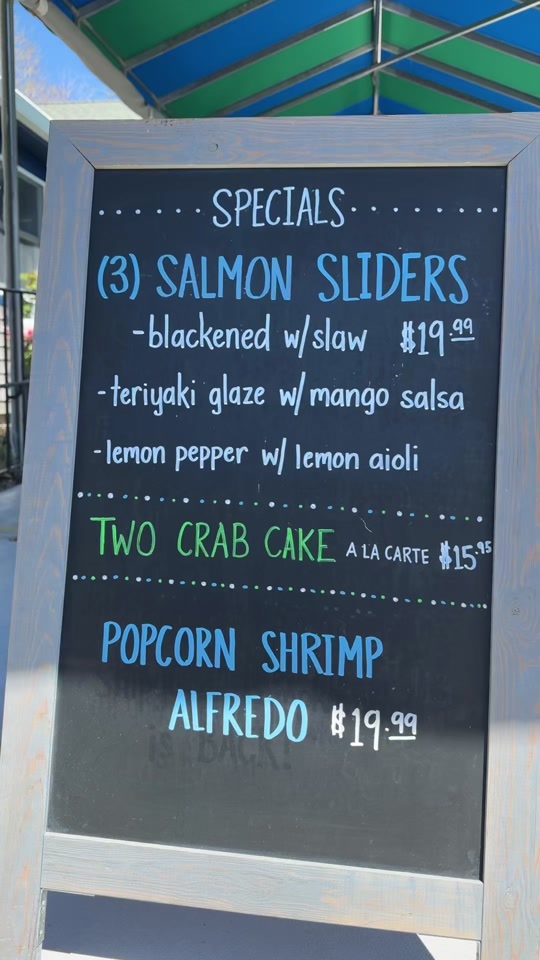 SPECIALS
(3) SALMON SLIDERS
-blackened w/slaw $19.99
-teriyaki glaze w/mango salsa
-lemon pepper w/ lemon aioli
TWO CRAB CAKE A LA CARTE $15.95
POPCORN SHRIMP
ALFREDO $19.99
IS BACK!